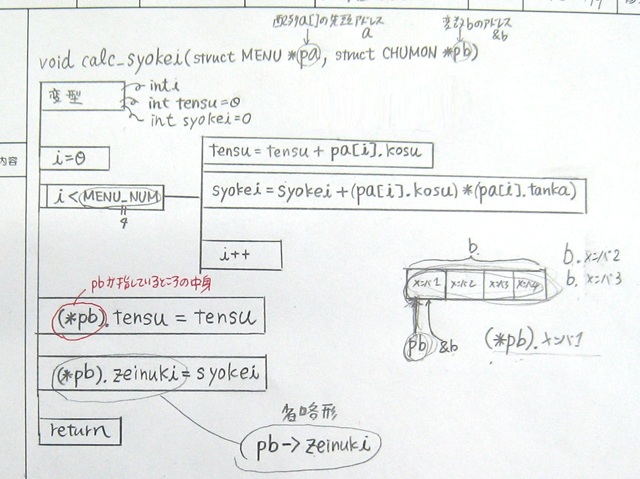 配列a[]の先頭アドレス
a
変数bのアドレス
&b
void calc_syokei(struct MENU *pa, struct CHUMON *pb)
変型
int i
int tensu=0
int syokei=0
内容
i=0
tensu = tensu + pa[i].kosu
i < MENU_NUM
4
syokei = syokei + (pa[i].kosu) * (pa[i].tanka)
i++
b.
b. メンバ2
b. メンバ3
メンバ1 メンバ2 メンバ3 メンバ4
pbが指しているところの中身
(*pb).tensu = tensu
pb &b
(*pb).メンバ1
(*pb).zeinuki = syokei
省略形
return
pb->zeinuki